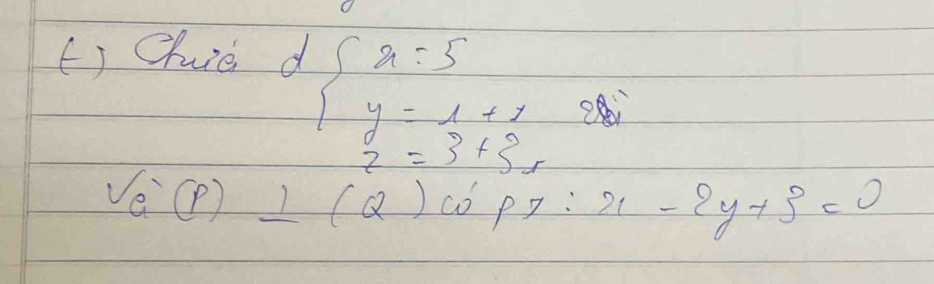 (-) Chứa d { x = 5
y = 1 + t
z = 3 + 3t
Và (P) ⊥ (Q) có pt : x - 2y + 3 = 0